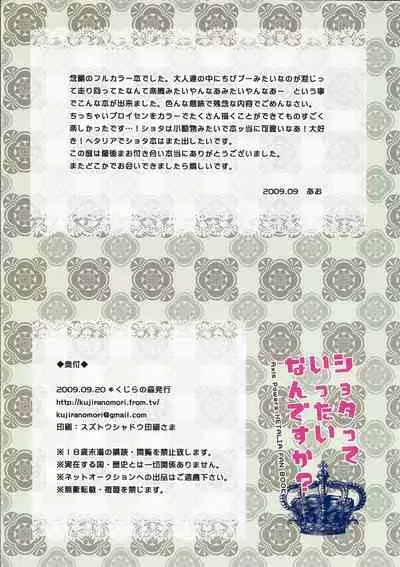 念願のフルカラー本でした。大人達の中にちびプーみたいなのが混じっ
て走り回ってたなんて素敵みたいやんなあみたいやんなあー　という事
でこんな本が出来ました。色んな意味で残念な内容でごめんなさい。
ちっちゃいプロイセンをカラーでたくさん描くことができてものすごく
楽しかったです…！ショタは小動物みたいで本ッ当に可愛いなあ！大好
き！ヘタリアでショタ本はまた出したいです。
この度は最後まお付き合い本当にありがとうございました。
またどこかでお会いできましたら嬉しいです。
2009.09　あお
ショタって
いったい
なんですか？
Axis Powers HETALIA FAN BOOK
◆奥付◆
2009.09.20＊くじらの森発行
http://kujiranomori.from.tv/
kujiranomori@gmail.com
印刷：スズトウシャドウ印刷さま
※18歳未満の購読・閲覧を禁止致します。
※実在する国・歴史とは一切関係ありません。
※ネットオークションへの出品はご遠慮下さい。
※無断転載・複製を禁じます。